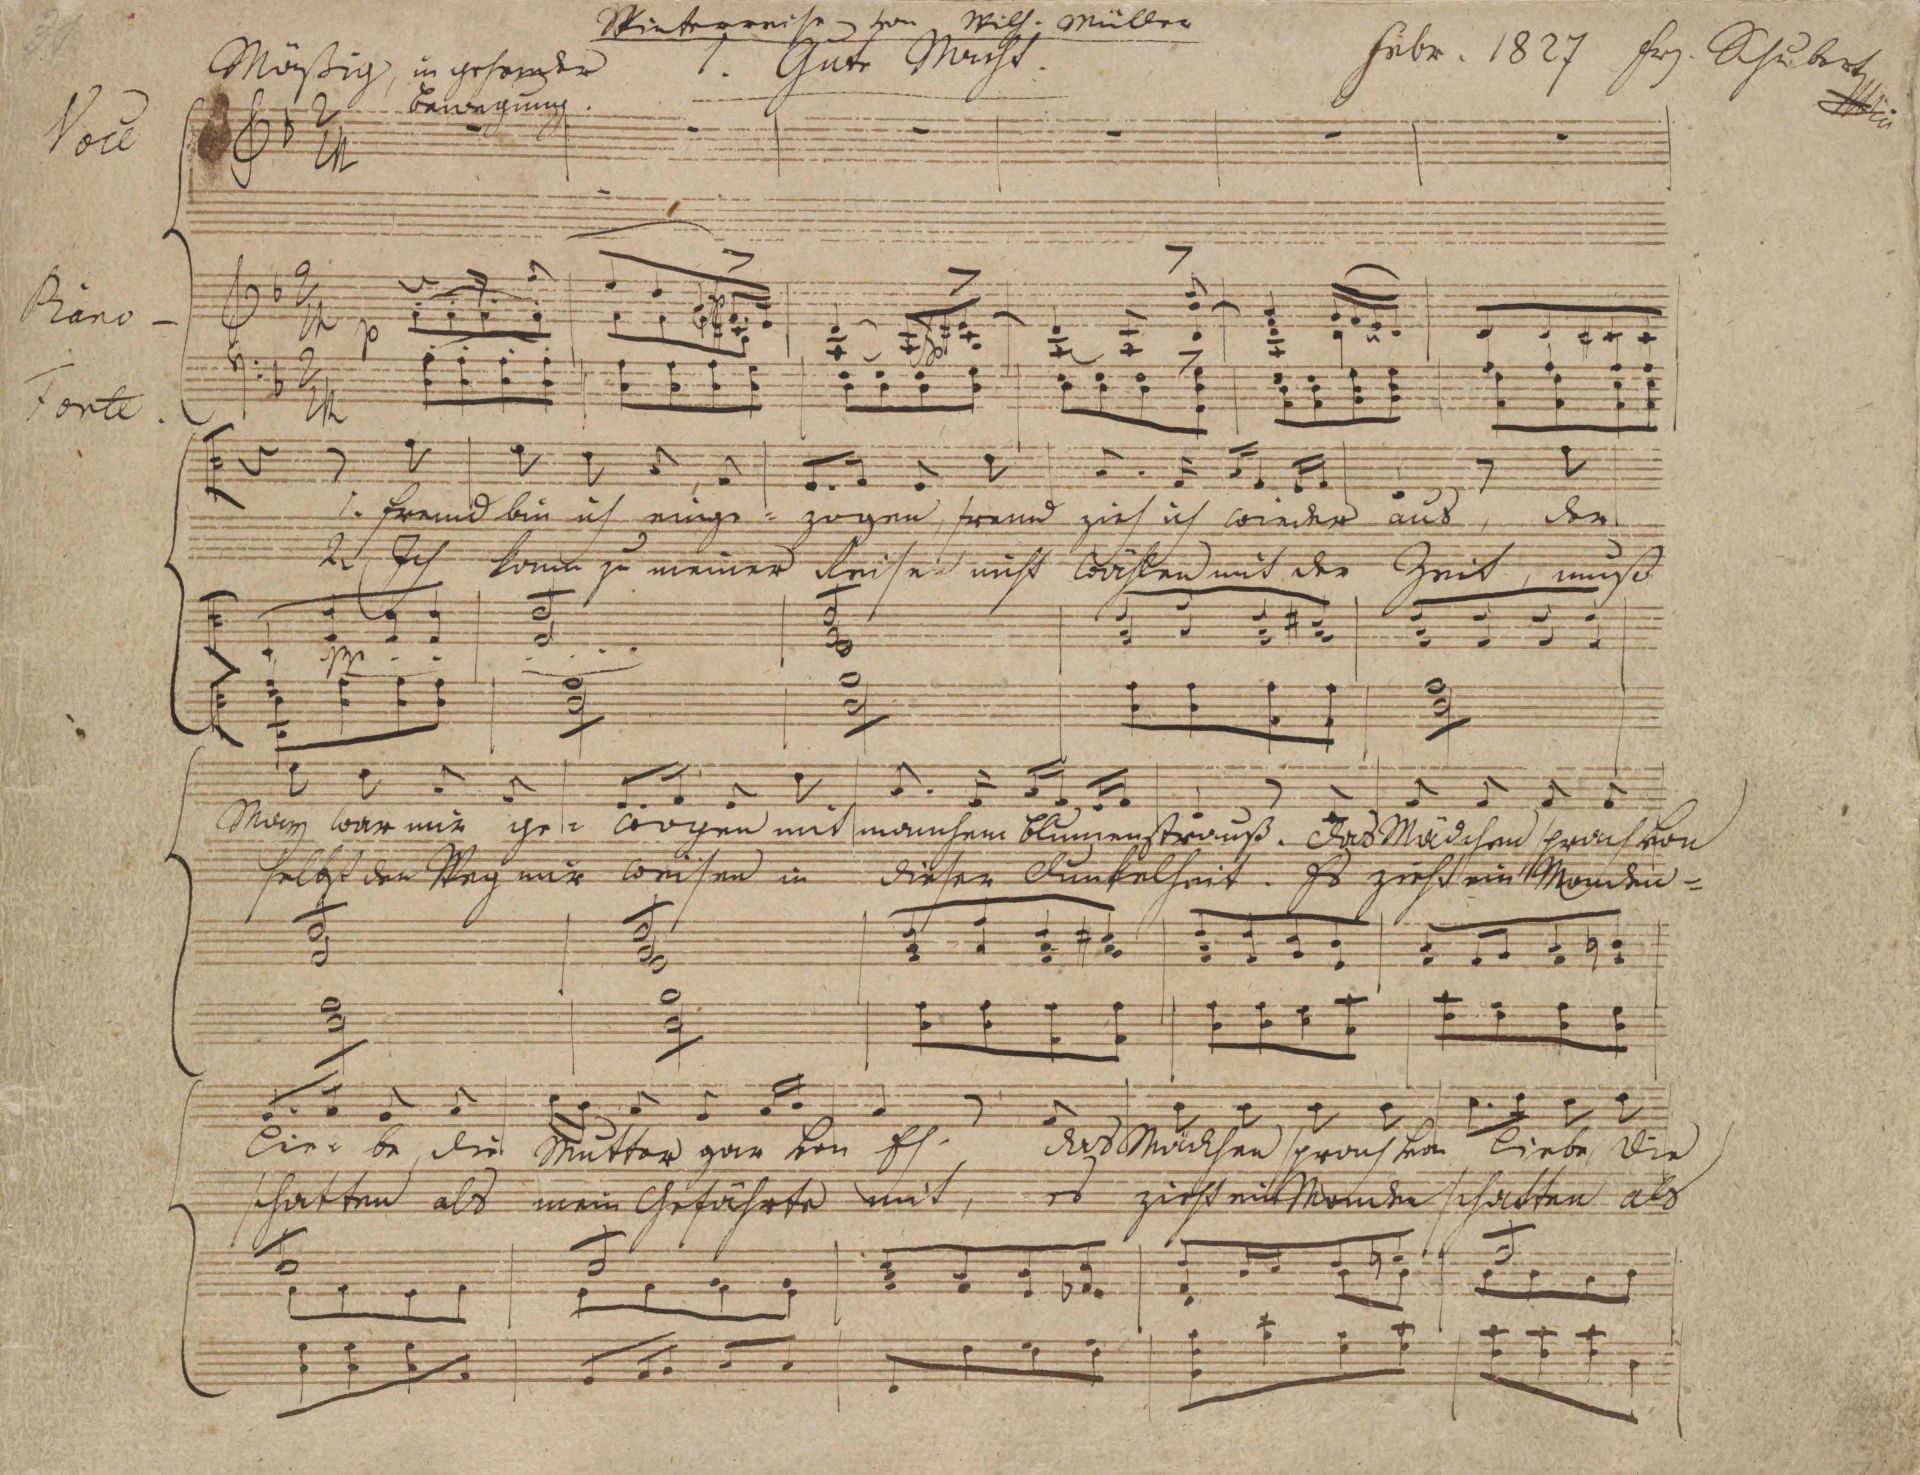 Winterreise von Wilh. Müller
Mäßig, in gehender Bewegung.
1. Gute Nacht.
Febr. 1827 Frz. Schubert
Voce
Piano-
Forte.
p
1. Fremd bin ich einge- zogen, fremd zieh ich wieder aus, der
2. Ich kann zu meiner Reisen nicht wählen mit der Zeit, muß
pp
May war mir ge- wogen mit manchem Blumenstrauß. Das Mädchen sprach von
selbst den Weg mir weisen in dieser Dunkelheit. Es zieht ein Monden-
Lie- be, die Mutter gar von Eh. das Mädchen sprach von Liebe, die
schatten als mein Gefährte mit, es zieht ein Monden schatten als